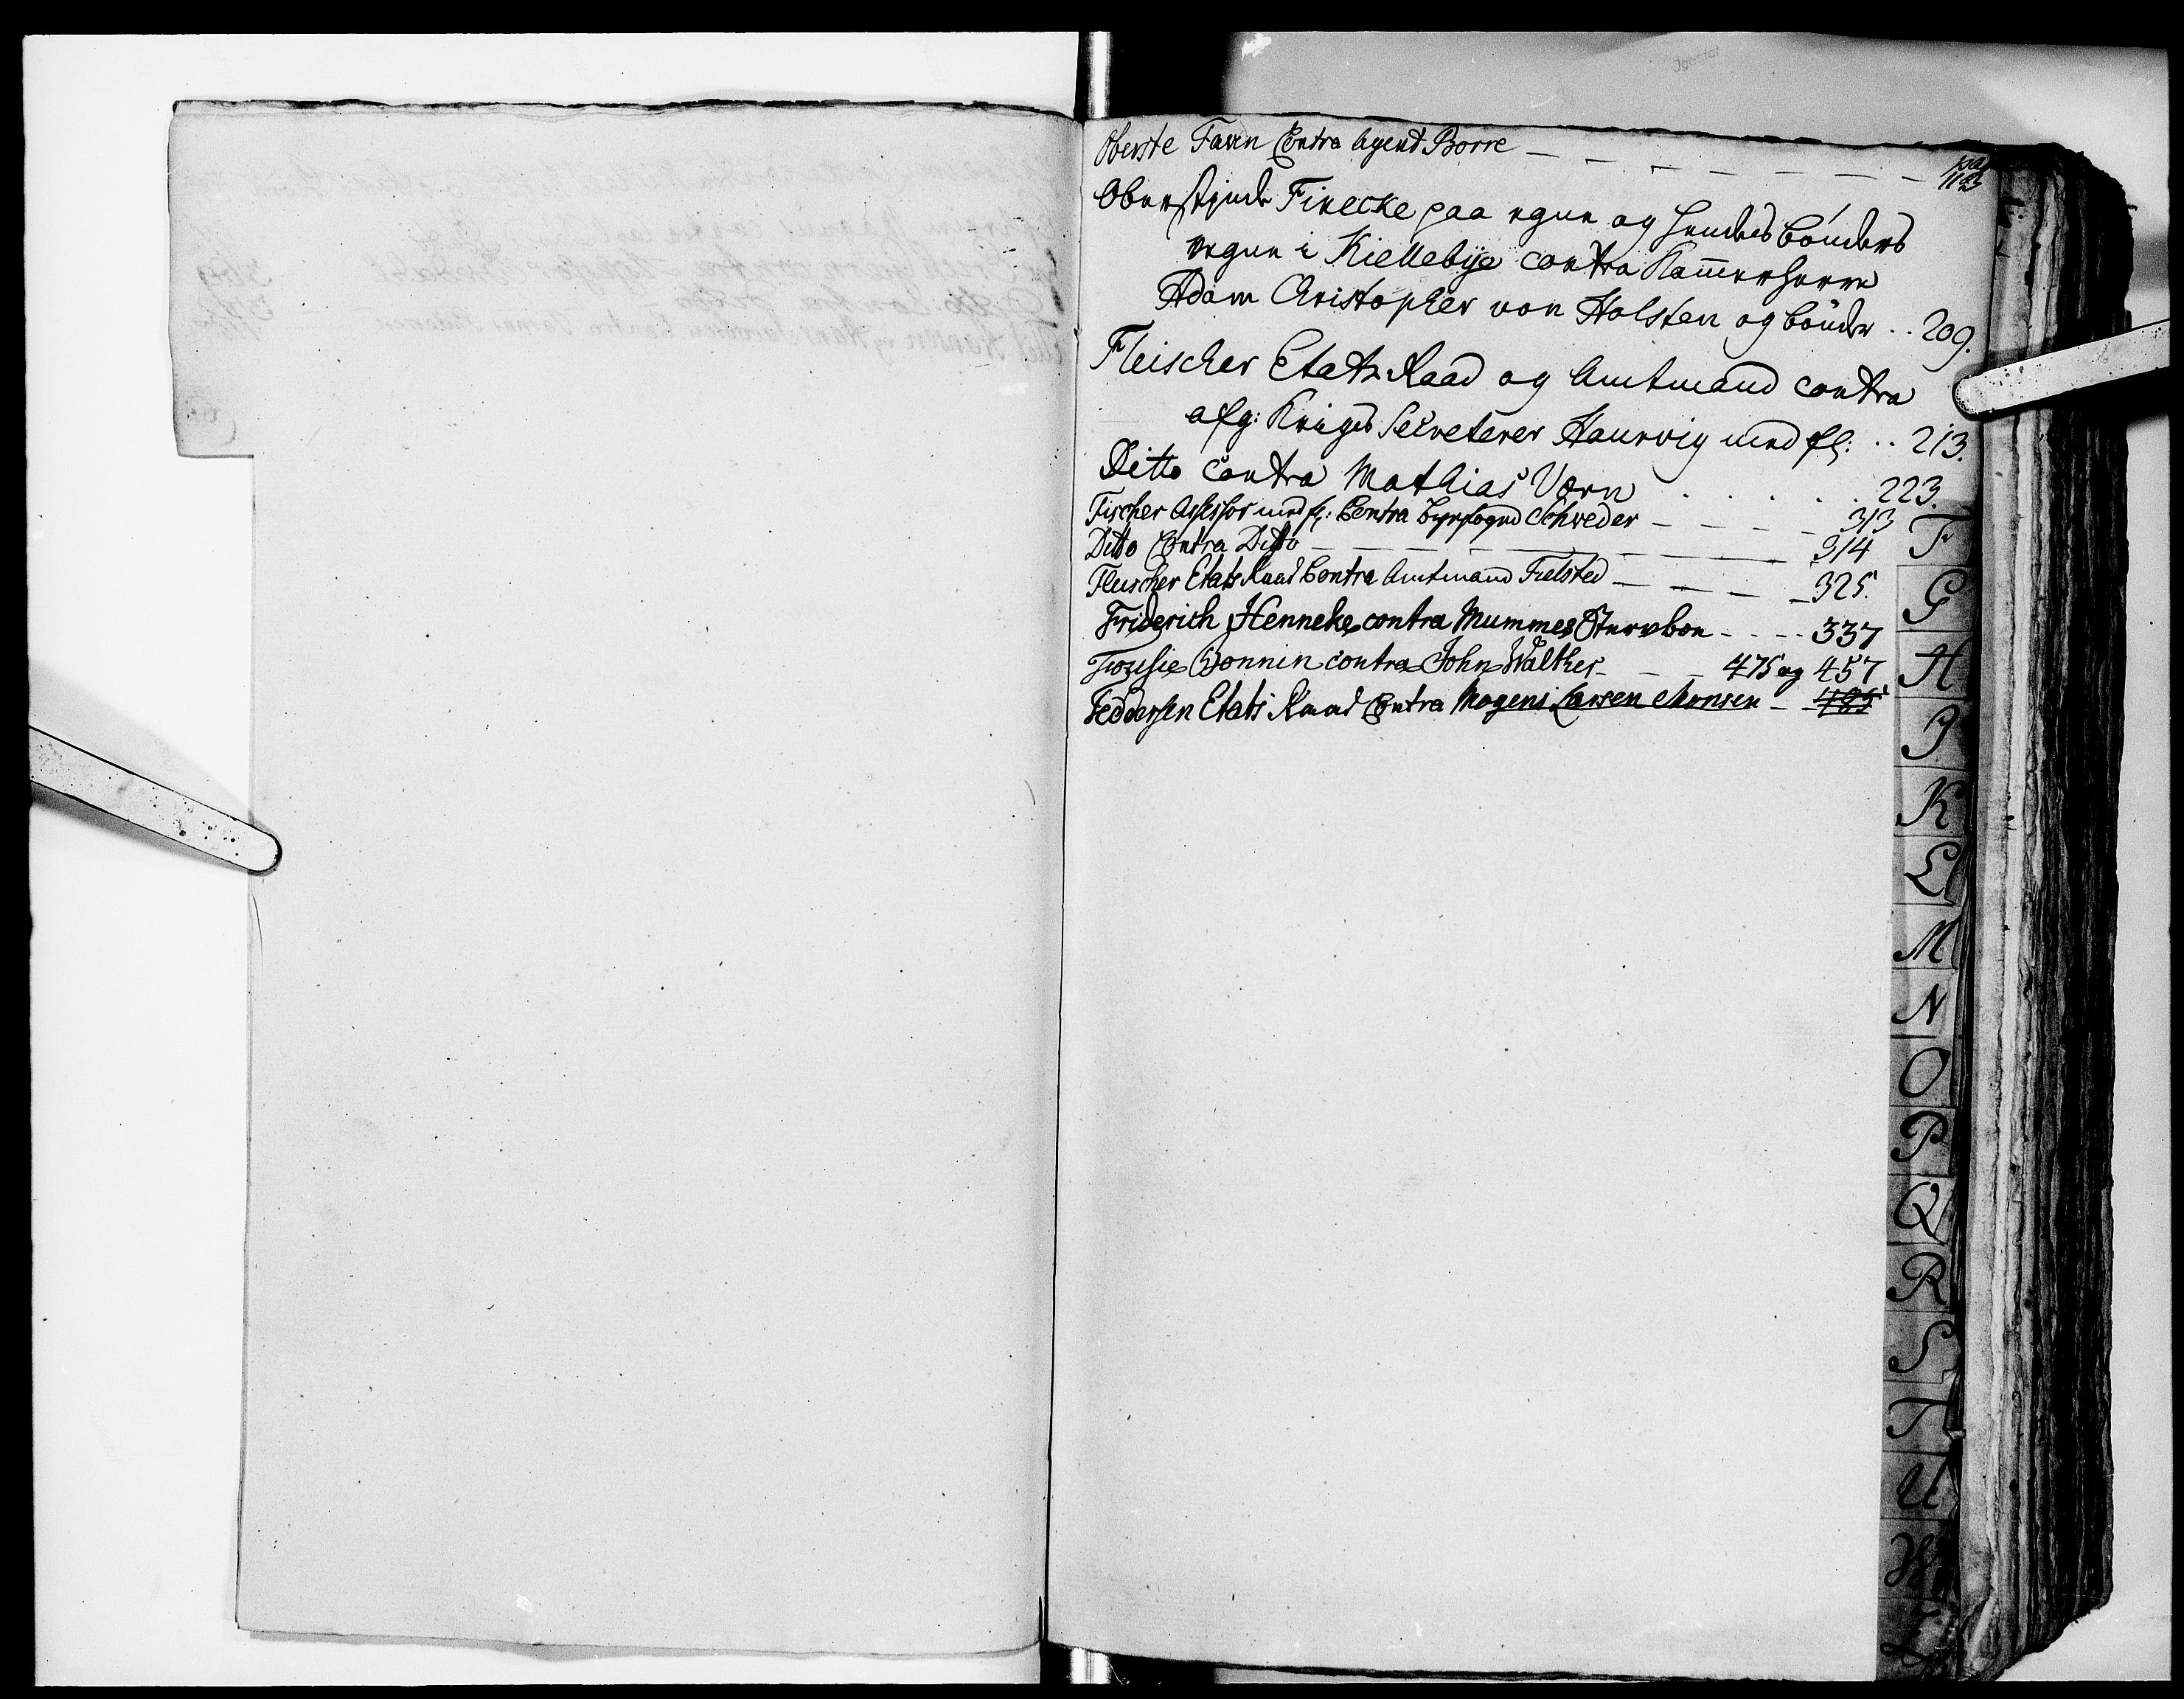 Oberste Favin Contra Agent Borre
Oberstinde Finecke paa egne og hendes bönders
vegne i Kiellebÿe contra Kammerherre
Adam Cristopher von Holsten og bönder .. 209.
Fleischer Etats Raad og Amtmand contra
afg: Krigs Secreterer Haurvig med fl: .. 213.
Ditto contra Mathias Vorn . . . . . 223.
Fischer Assessor med fl: Contra Byefoged Schreder – – – – 313
Ditto Contra Ditto – – – – – – – 314
Fleischer Etats Raad Contra Amtmand Fielsted – – – – 325.
Friderich Henneke contra Mummes Sterboe - - - - 337
Contra John Walther - - - 475 og 457
Feddersen Etats Raad Contra Mogens Larsen Monsen – 485
F
G
H
I
K
L
M
N
O
P
Q
R
S
T
U
W